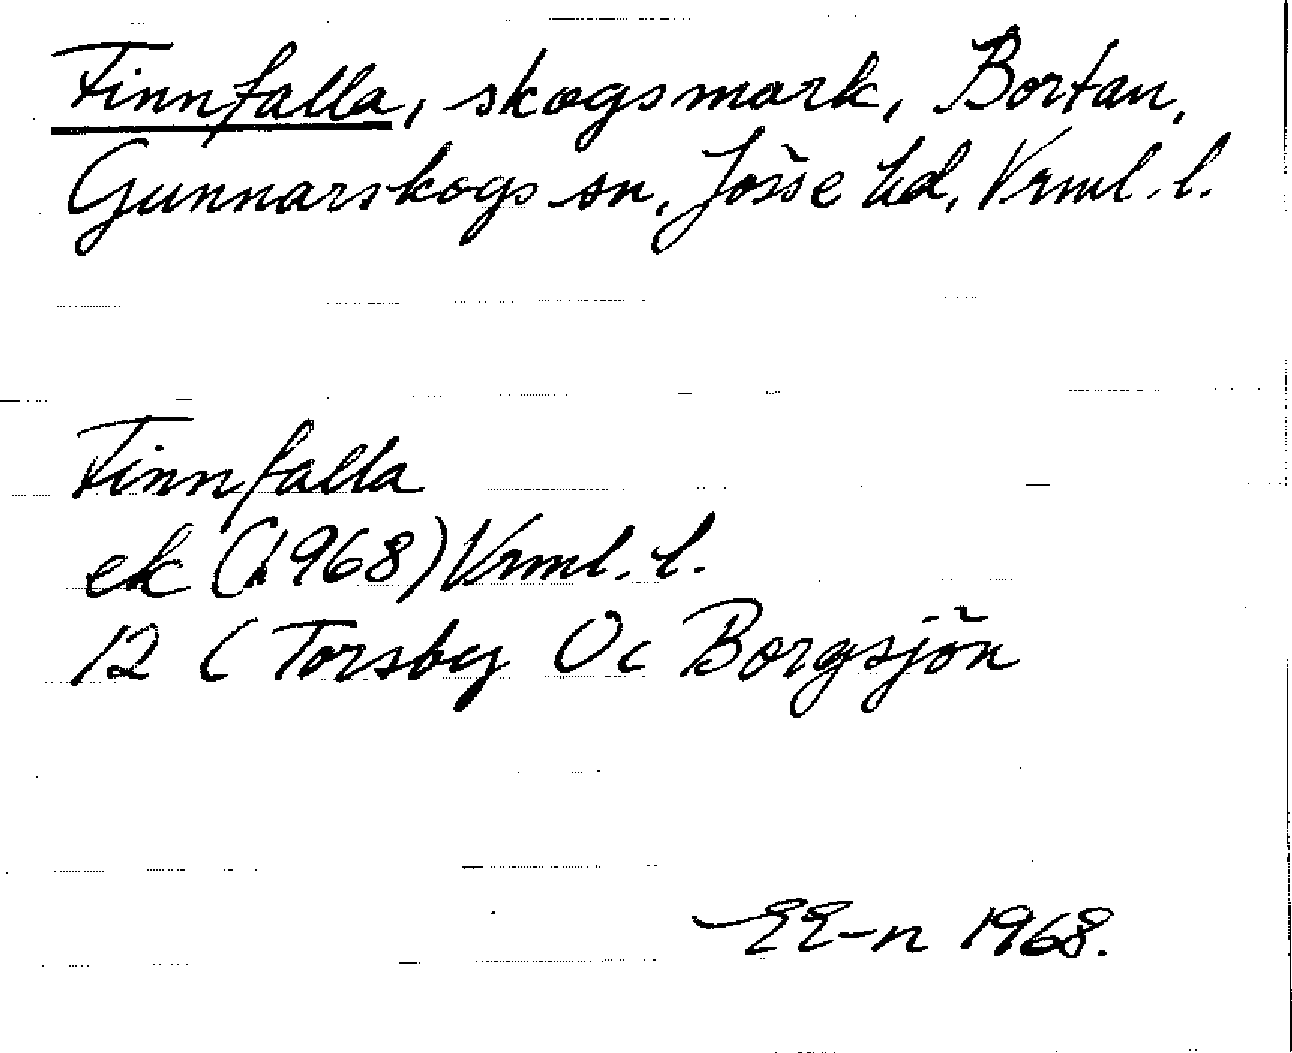 Finnfalla, skogsmark, Bortan,
Gunnarskogs sn, Jösse hd, Vrml. l.
Finnfalla
ek (1968) Vrml. l.
12 C Torsby Oc Borgsjön
EE-n 1968.